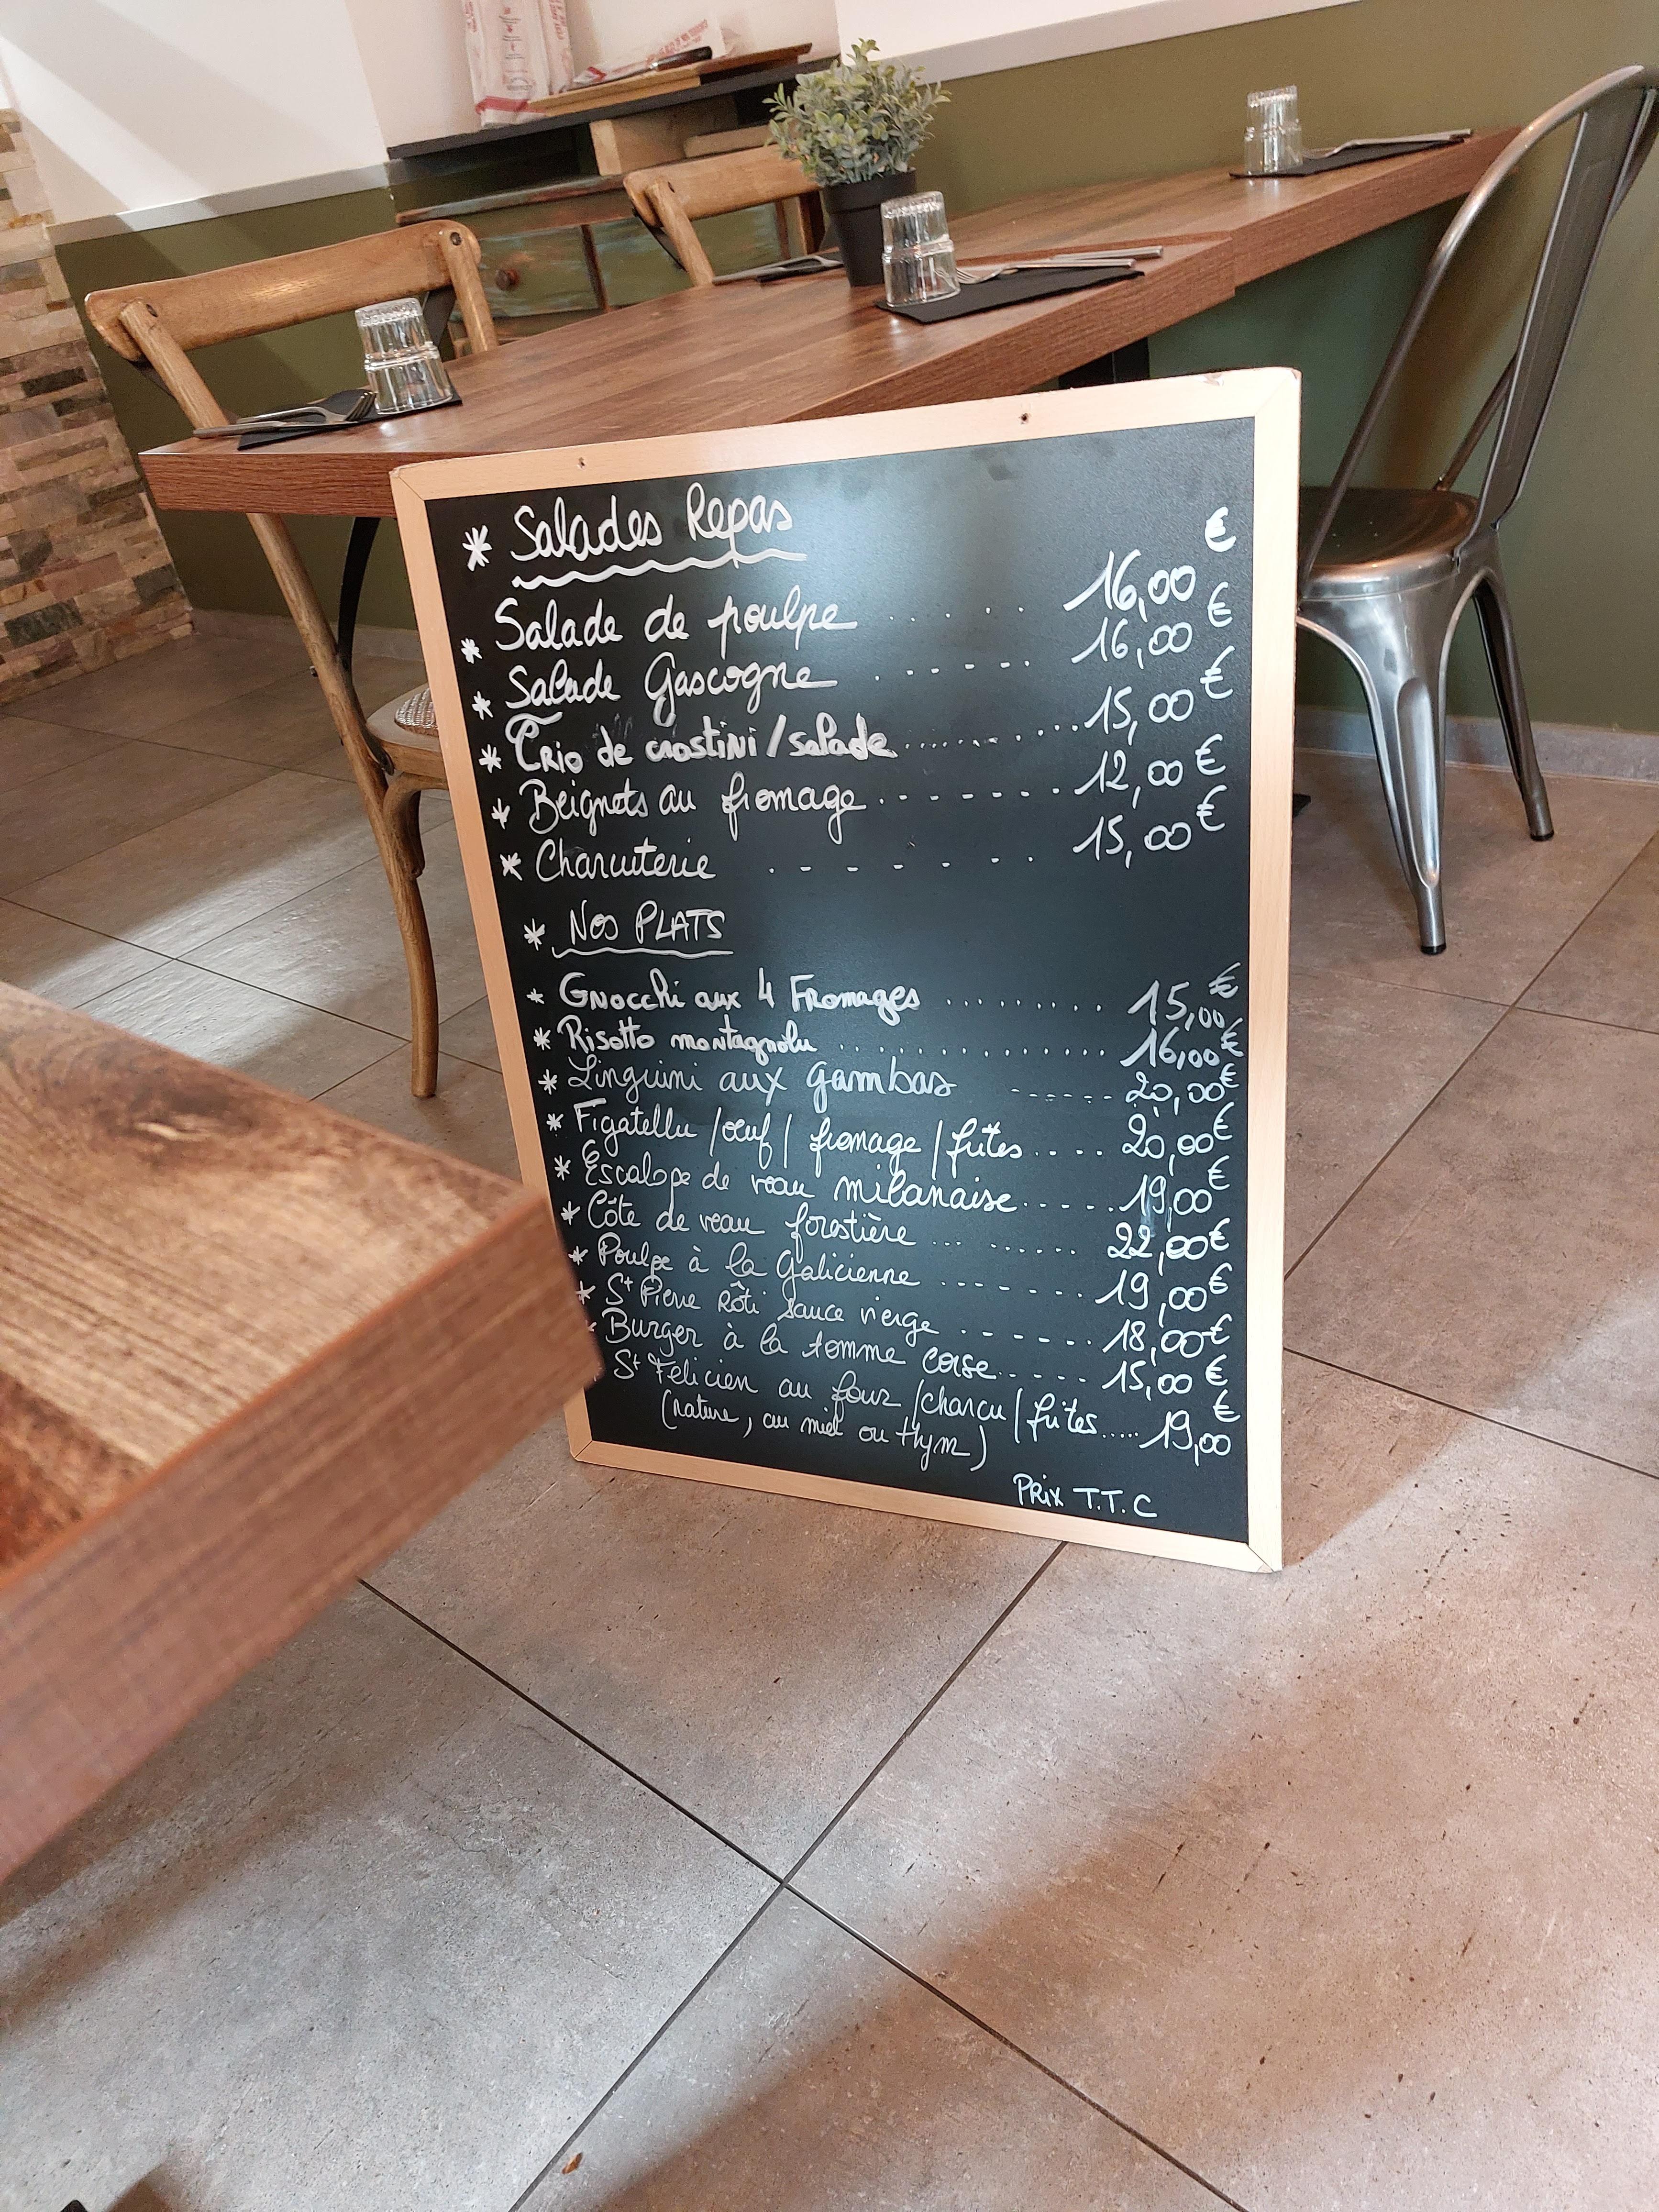 * Salades Repas
* Salade de poulpe ...... 16,00 €
* Salade Gascogne ...... 16,00 €
* Trio de crostini/salade ...... 15,00 €
* Beignets au fromage ....... 12,00 €
* Charcuterie ....... 15,00 €
* NOS PLATS
* Gnocchi aux 4 Fromages ........ 15,00 €
* Risotto montagnolu ............ 16,00 €
* Linguini aux gambas ...... 20,00 €
* Figatellu /œuf/ fromage/frites .... 20,00 €
* Escalope de veau milanaise ..... 19,00 €
* Côte de veau forestière ......... 22,00 €
* Poulpe à la Galicienne ..... 19,00 €
* St Pierre Rôti sauce vierge ...... 18,00 €
* Burger à la tomme corse ..... 15,00 €
St Félicien au four /charcu/frites ..... 19,00 €
(nature, au miel ou thym)
PRix T.T.C